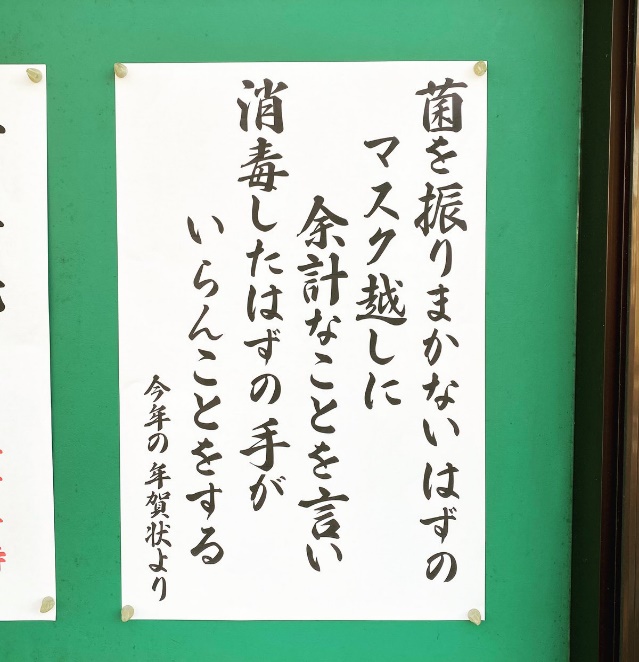 菌を振りまかないはずの
マスク越しに
余計なことを言い
消毒したはずの手が
いらんことをする
今年の年賀状より